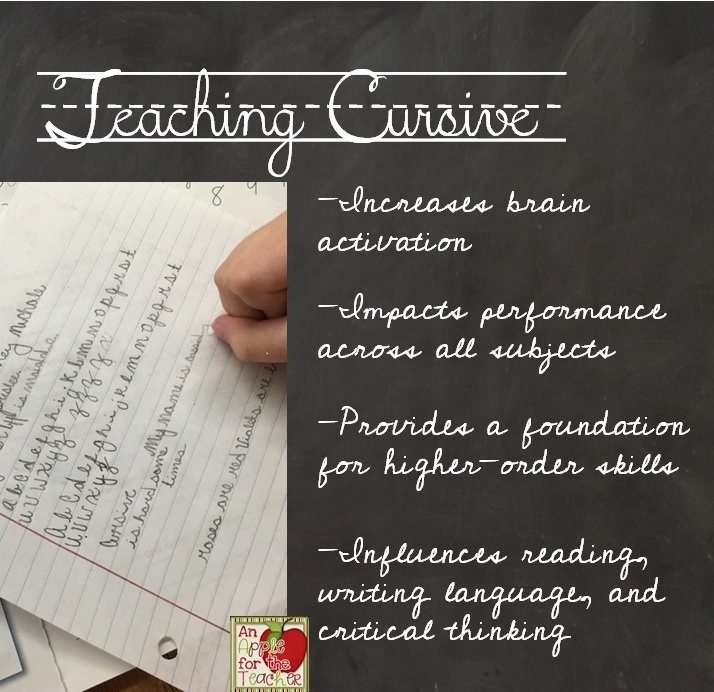 Teaching Cursive
-Increases brain
activation
-Impacts performance
across all subjects
-Provides a foundation
for higher-order skills
-Influences reading,
writing language, and
critical thinking
8 9
a b c d e f g h i j k l m n o p q r s t
u v w x y z
A b C d e f g h i j k l m n o p q r s t
u v w x y z
Cursive My name is
is hard some
times
roses are red
An
Apple
for the
Teacher